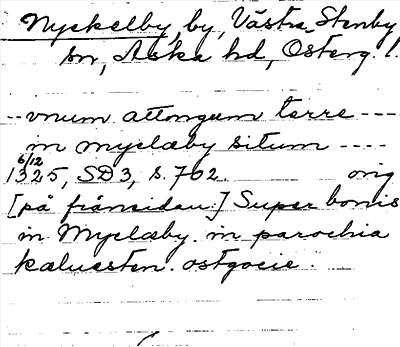 Nyckelby, by, Västra Stenby
sn, Aska hd, Österg. l.
-- vnum attongum terre ----
in myclæby situm ----
6/12
1325, SD 3, s. 702. orig
[på frånsidan:] Super bonis
in Myclæby. in parochia
kæluesten. ostgocie.